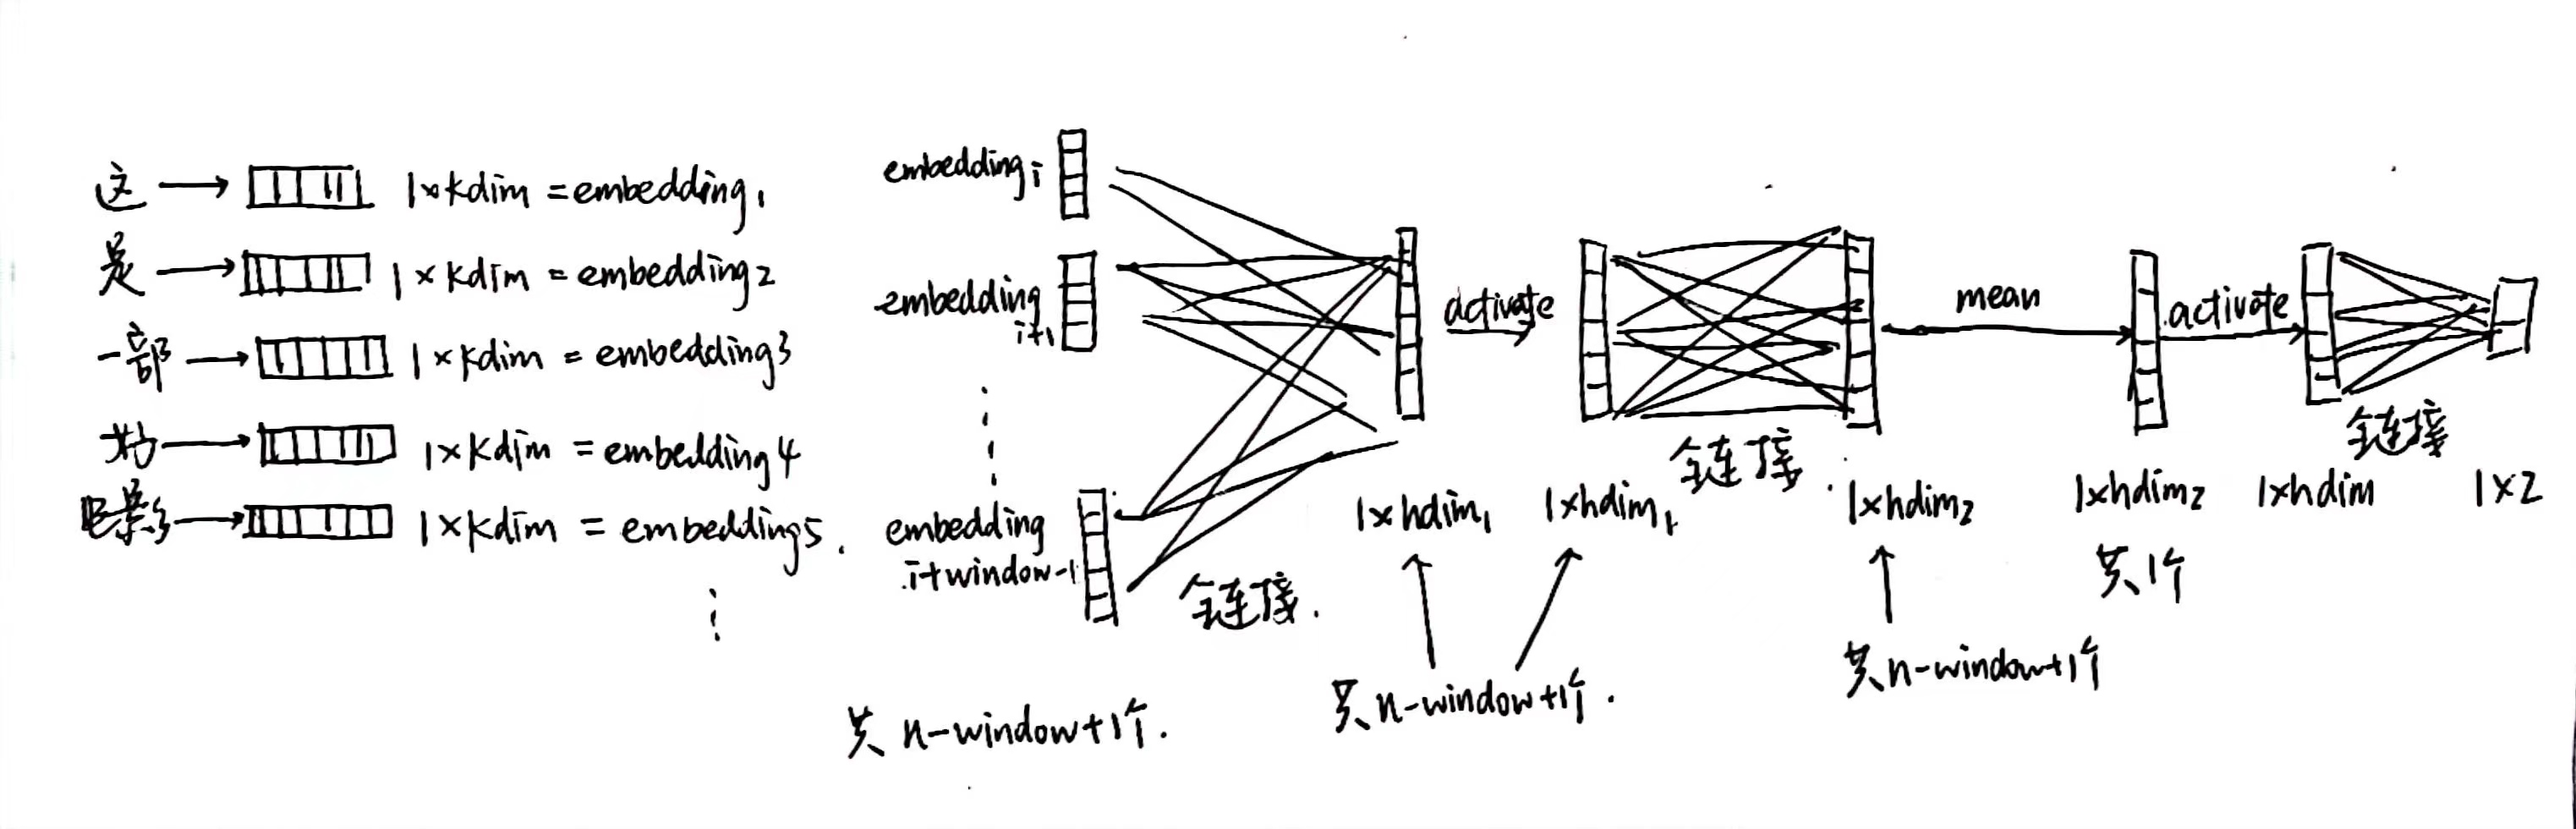 这 → 1×kdim = embedding1
是 → 1×kdim = embedding2
一部 → 1×kdim = embedding3
1×kdim = embedding4
电影 → 1×kdim = embedding5.
embedding i
embedding i+1
embedding i+window-1
全链接.
共 n-window+1个.
activate
1×hdim1
1×hdim1
共 n-window+1个.
全链接.
1×hdim2
共 n-window+1个
mean
1×hdim2
共1个
activate
1×hdim
全链接
1×2